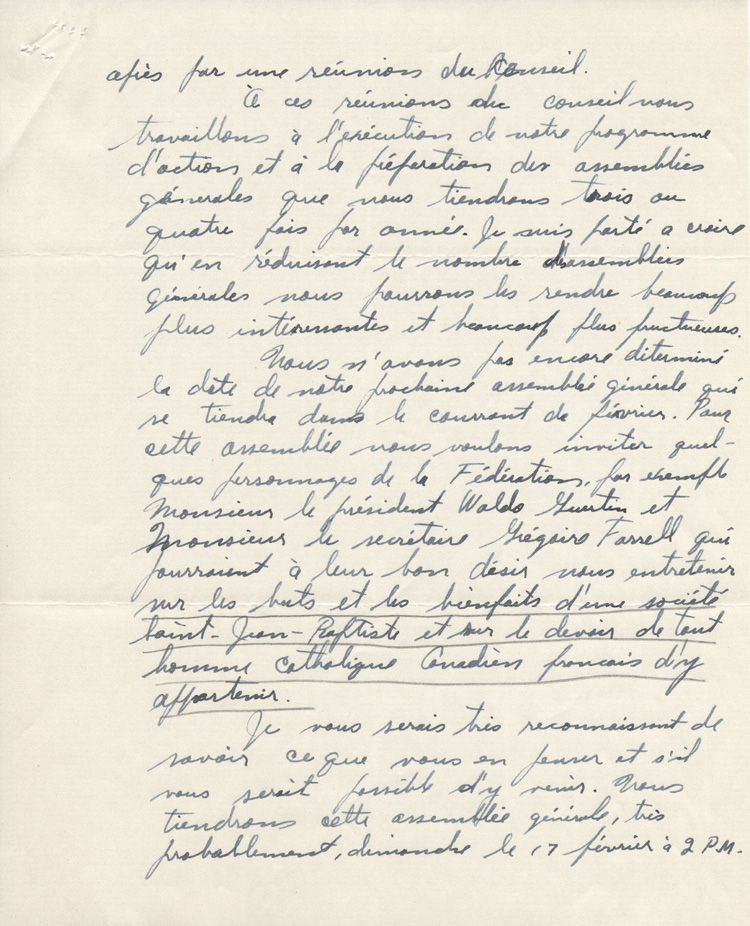 après par une réunions du Conseil.
À ces réunions du conseil nous
travaillons à l'exécution de notre programme
d'actions et à la préparation des assemblées
générales que nous tiendrons trois ou
quatre fois par année. Je suis porté a croire
qu'en réduisant le nombre d'assemblées
générales nous pourrons les rendre beaucoup
plus intéressantes et beaucoup plus fructueuses.
Nous n'avons pas encore déterminé
la date de notre prochaine assemblée générale qui
se tiendra dans le courrant de février. Pour
cette assemblée nous voulons inviter quel-
ques personnages de la Fédération, par exemple
Monsieur le président Waldo Guertin et
Monsieur le secrétaire Grégoire Farrell qui
pourraient à leur bon désir nous entretenir
sur les buts et les bienfaits d'une société
Saint-Jean-Baptiste et sur le devoir de tout
homme catholique Canadien francais d'y
appartenir.
Je vous serais très reconnaissant de
savoir ce que vous en penser et s'il
vous serait possible d'y venir. Nous
tiendrons cette assemblée générale, très
probablement, dimanche le 17 février à 2 P.M.